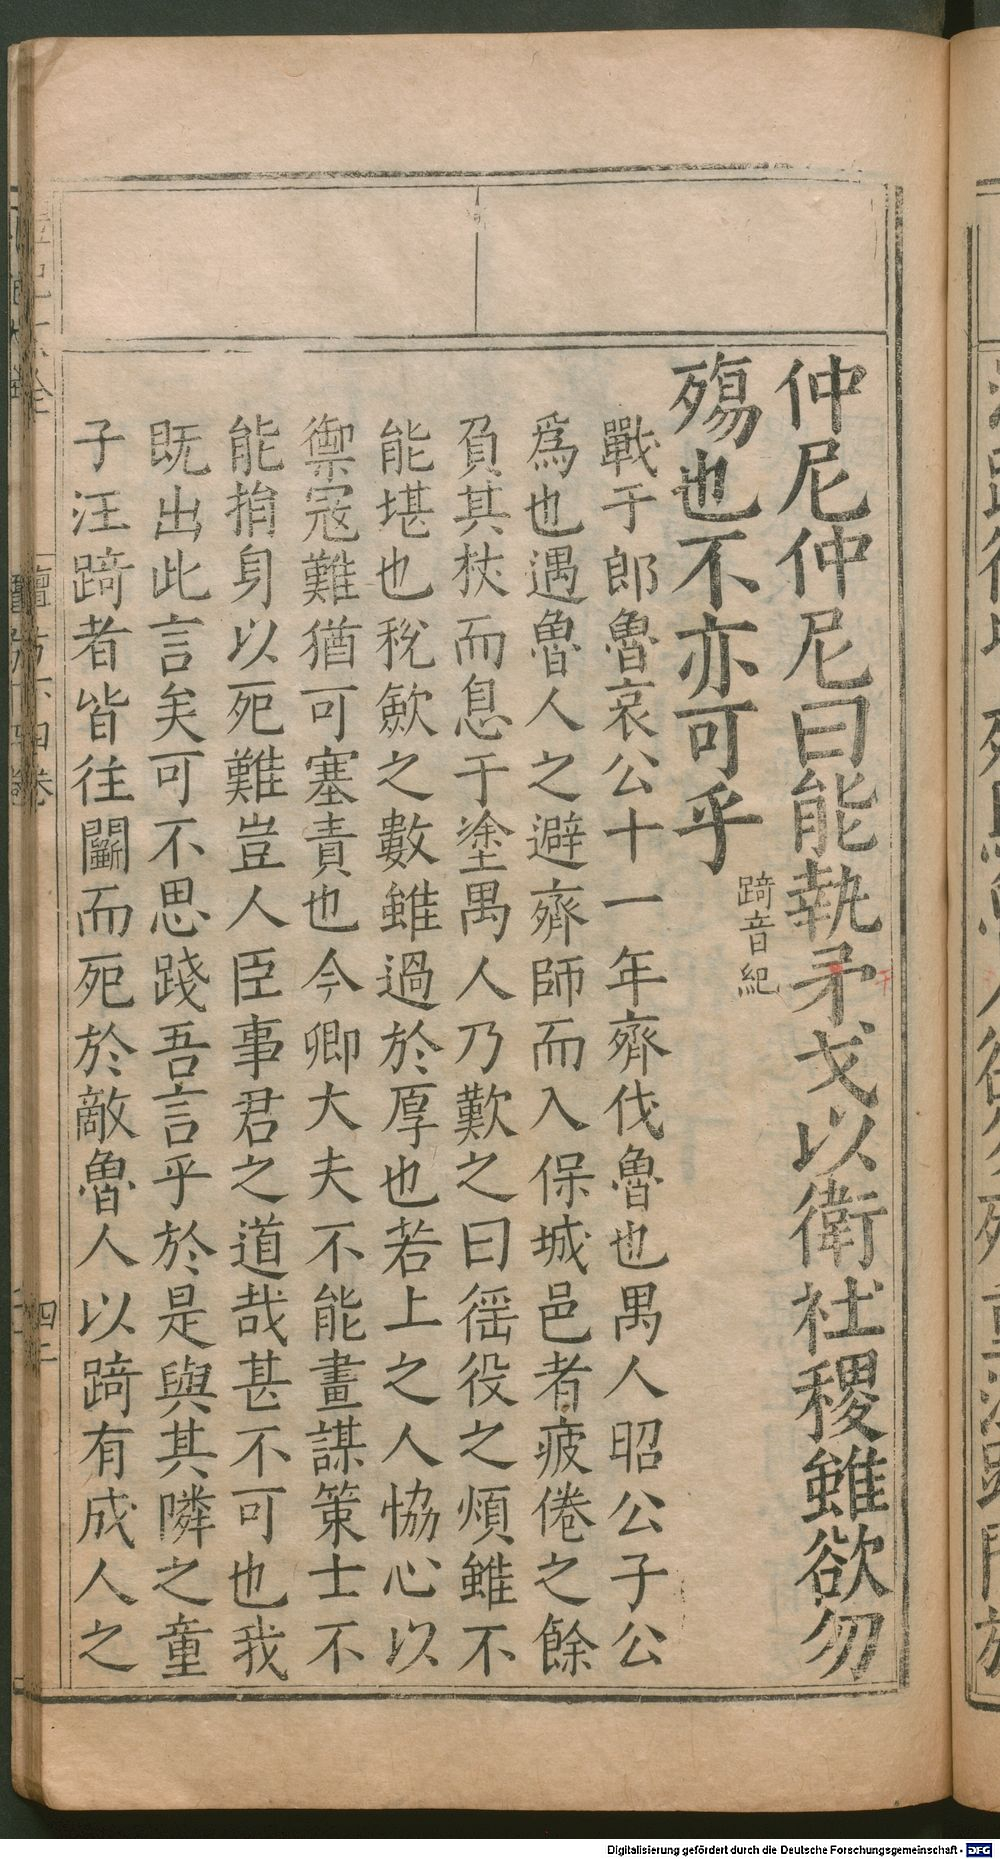 仲尼仲尼曰能執矛戈以衛社稷雖欲勿
殤也不亦可乎
踦音紀
戰于郎魯哀公十一年齊伐魯也禺人昭公子公
爲也遇魯人之避齊師而入保城邑者疲倦之餘
負其杖而息于塗禺人乃歎之曰徭役之煩雖不
能堪也稅歛之數雖過於厚也若上之人恊心以
禦冦難猶可塞責也今卿大夫不能畫謀策士不
能捐身以死難豈人臣事君之道哉甚不可也我
既出此言矣可不思踐吾言乎於是與其隣之童
子汪踦者皆往鬭而死於敵魯人以踦有成人之
Digitalisierung gefördert durch die Deutsche Forschungsgemeinschaft - DFG